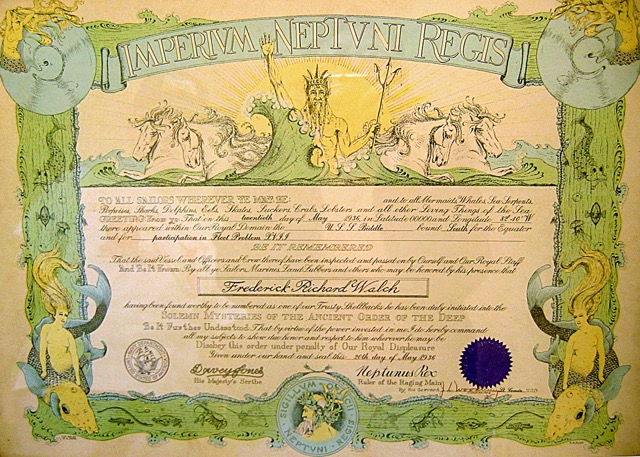 IMPERIVM NEPTVNI REGIS
TO ALL SAILORS WHEREVER YE MAY BE: and to all Mermaids, Whales, Sea Serpents,
Porpoises, Sharks, Dolphins, Eels, Skates, Suckers, Crabs, Lobsters and all other Living Things of the Sea
GREETING: Know ye: That on this twentieth day of May 1936, in Latitude 00000 and Longitude
there appeared within Our Royal Domain the U.S.S. Biddle bound South for the Equator
and for participation in Fleet Problem XVII
BE IT REMEMBERED
That the said Vessel and Officers and Crew thereof have been inspected and passed on by Ourself and Our Royal Staff
And Be It Known: By all ye Sailors, Marines, Land Lubbers and others who may be honored by his presence that
Frederick Richard Walch
having been found worthy to be numbered as one of our Trusty Shellbacks he has been duly initiated into the
SOLEMN MYSTERIES OF THE ANCIENT ORDER OF THE DEEP
Be It Further Understood: That by virtue of the power invested in me I do hereby command
all my subjects to show due honor and respect to him wherever he may be.
Disobey this order under penalty of Our Royal Displeasure
Given under our hand and seal this 20th day of May 1936
Davey Jones
His Majesty's Scribe
Neptunus Rex
Ruler of the Raging Main
By his Servant
SIGILLVM
NEPTVNI REGIS